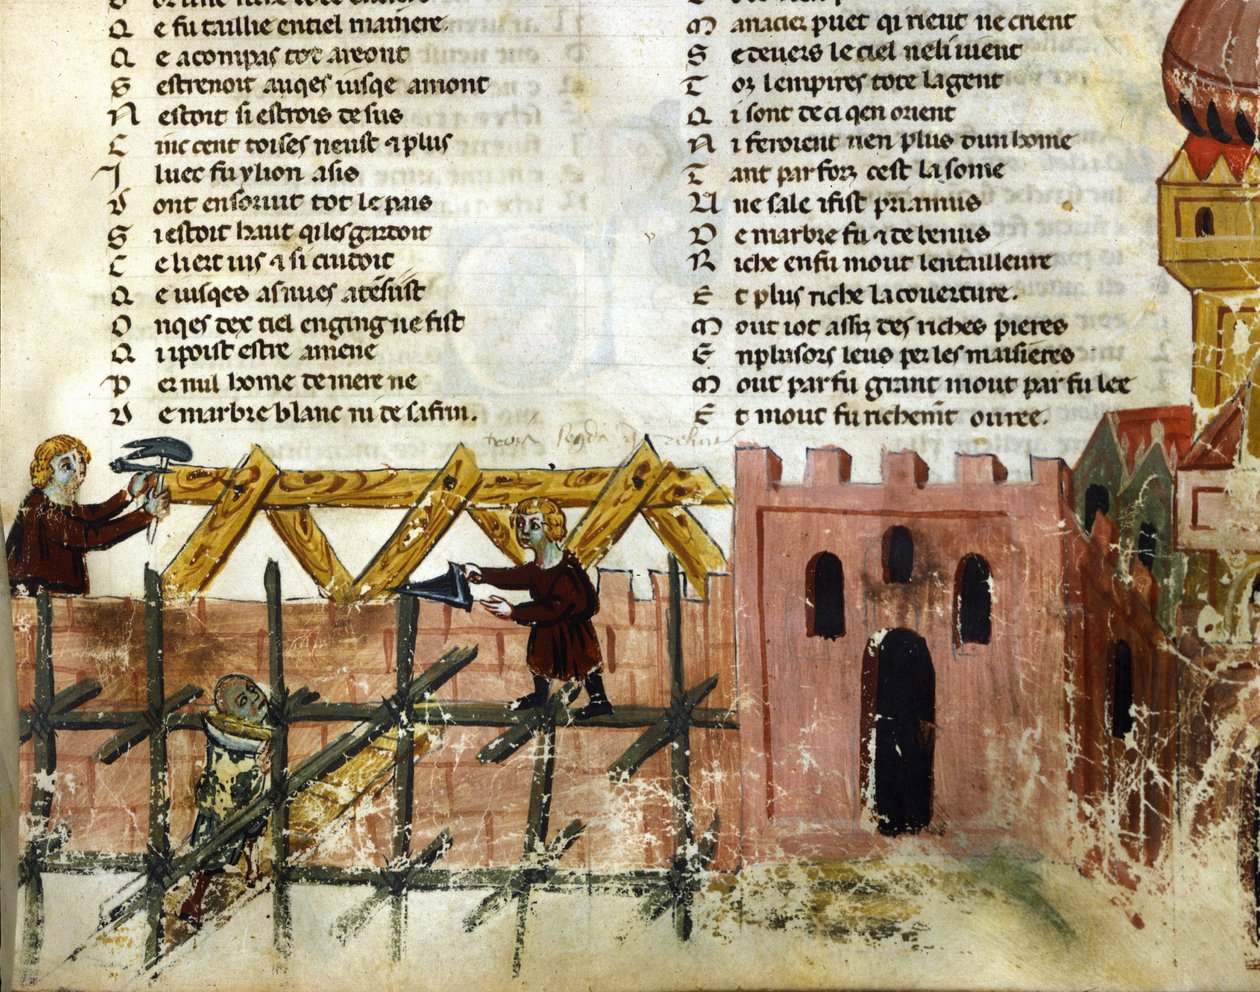 Q e fu taillie en tiel maniere.
Q e a compas tot areont
S estrenoit auqes iusqe amont
N estoit si estrois desus
C inc cent toises neust & plus
I luec fu ylion asis
D ont en soruit tot le pais
S i estoit haut qi les gardoit
C e li ert uis & si cuidoit
Q e iusqes as nues atensist
O nqes dex tiel enging ne fist
Q i poust estre amene
P er nul home de mere ne
D e marbre blanc ni de safrin.
M anacier puet qi rient ne crient
S e deuers le ciel ne li uient
T oz lempires tote la gent
Q i sont de ci qen orient
N i feroient nen plus dun home
T ant par forz cest la some
U ne sale i fist priamus
D e marbre fu & de benus
R iche en fu mout lentailleure
E t plus riche la couerture.
M out iot assez des riches pieres
E n plusors leus per les maisieres
M out par fu grant mout par fu lee
E t mout fu richemt ouree.